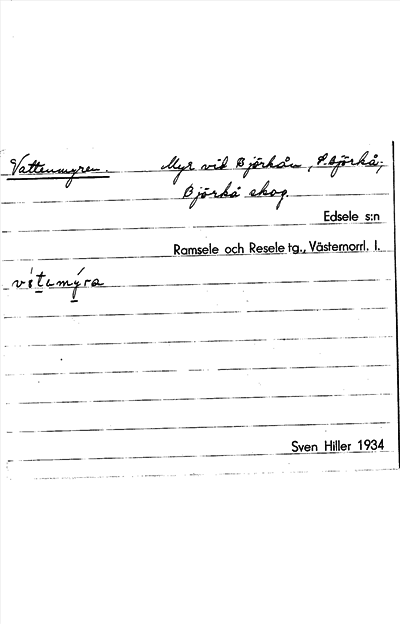 Vattenmyren. Myr vid Björkån, S. Björkå,
Björkå skog.
Edsele s:n
Ramsele och Resele tg., Västernorrl. l.
Sven Hiller 1934